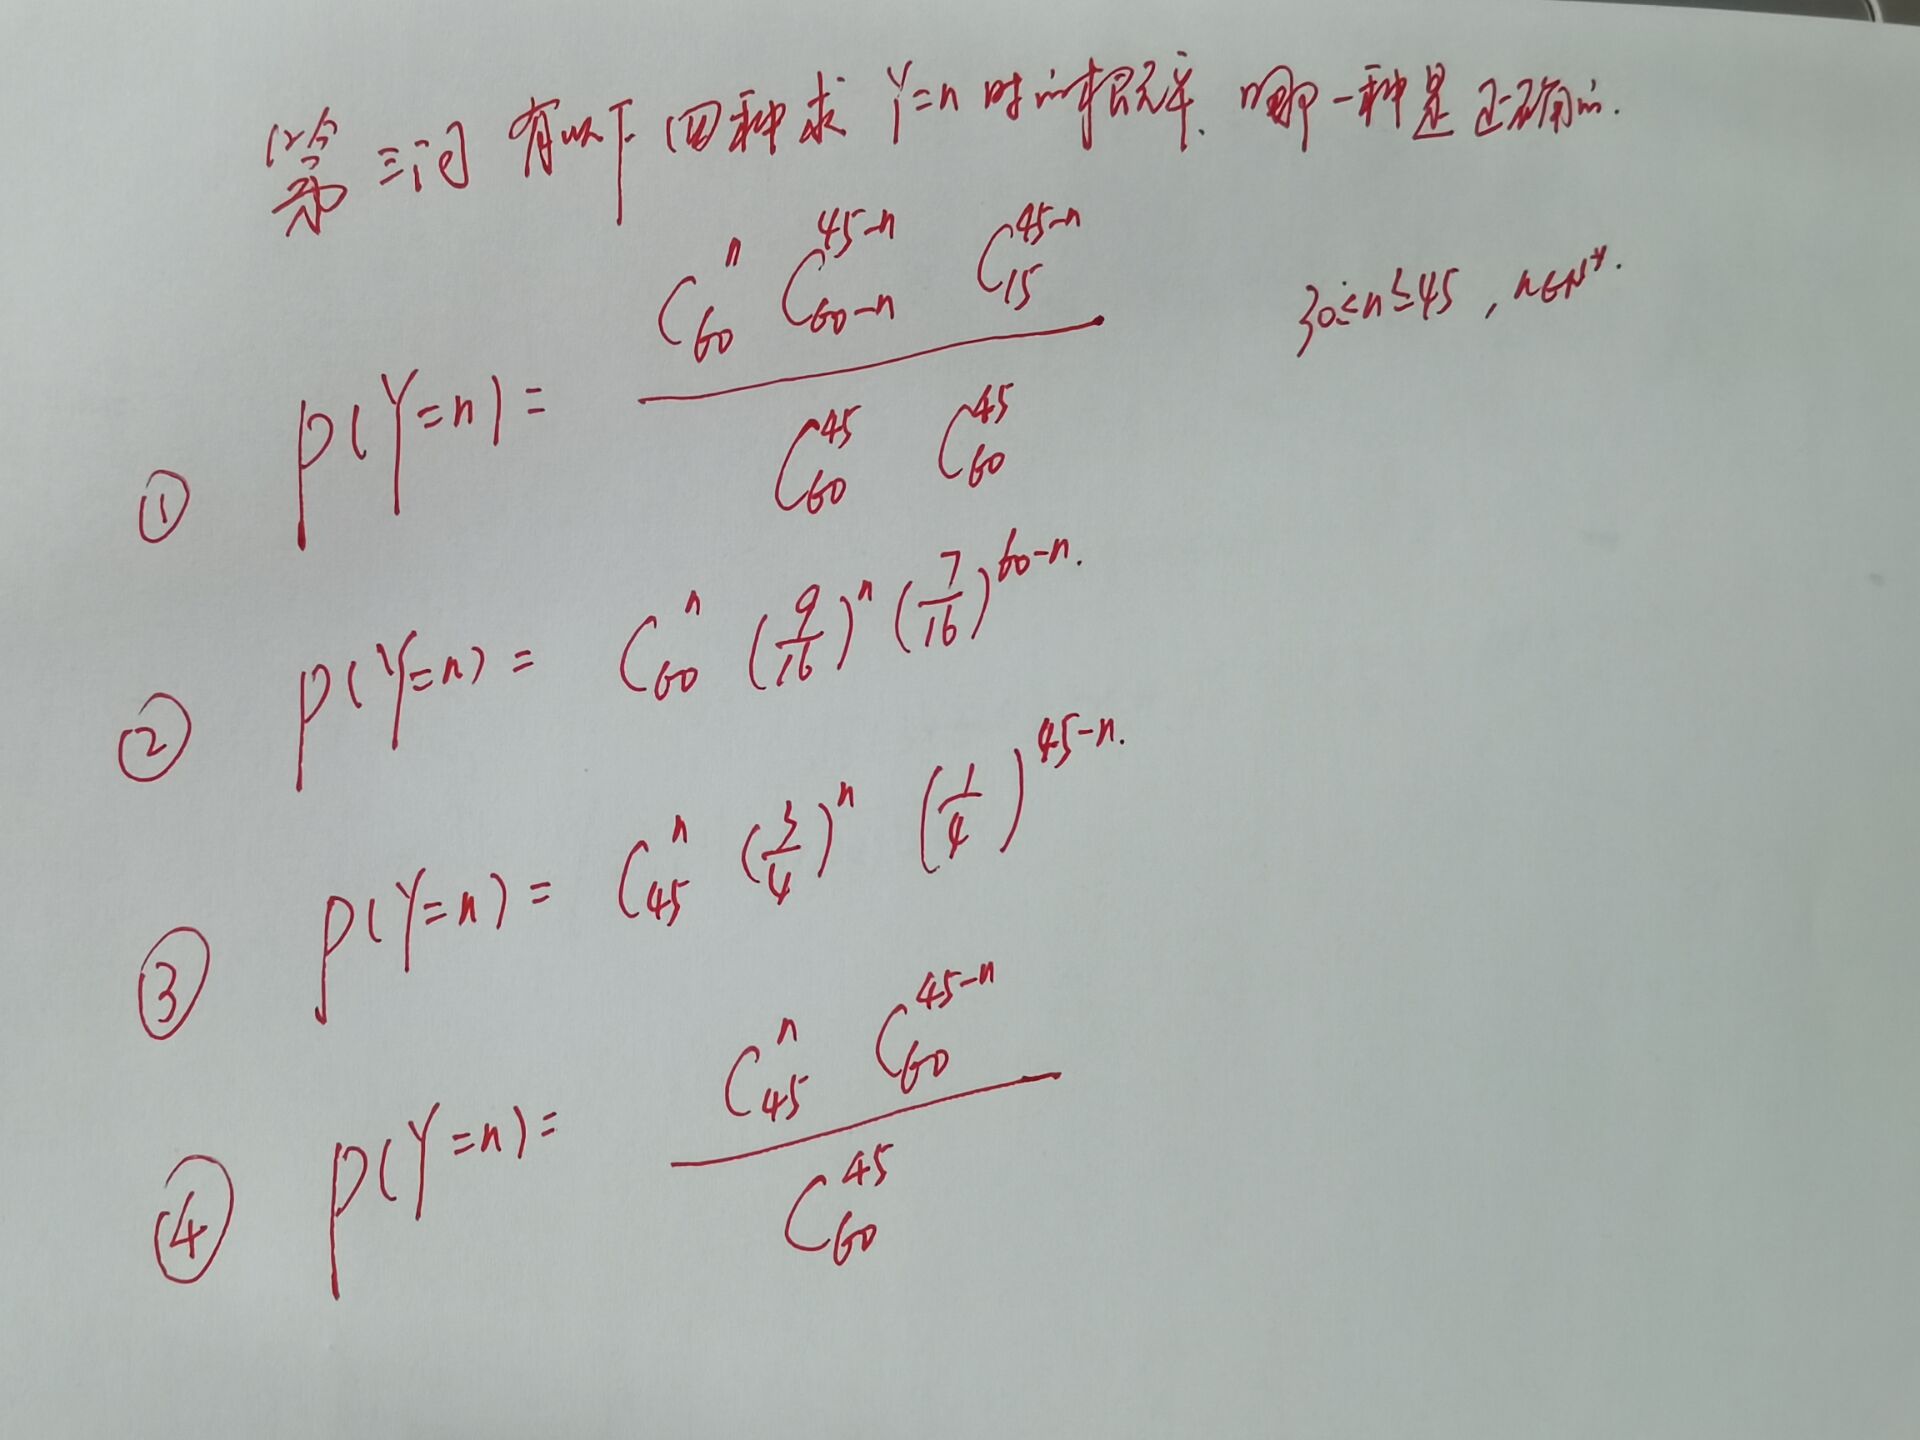 第三问 有以下四种求 Y=n 时的概率. 哪一种是正确的.
① P(Y=n) = \frac{C_{60}^{n} C_{60-n}^{45-n} C_{15}^{45-n}}{C_{60}^{45} C_{60}^{45}} 30≤n≤45, n∈N*.
② P(Y=n) = C_{60}^{n} (\frac{9}{16})^{n} (\frac{7}{16})^{60-n}.
③ P(Y=n) = C_{45}^{n} (\frac{3}{4})^{n} (\frac{1}{4})^{45-n}.
④ P(Y=n) = \frac{C_{45}^{n} C_{60}^{45-n}}{C_{60}^{45}}